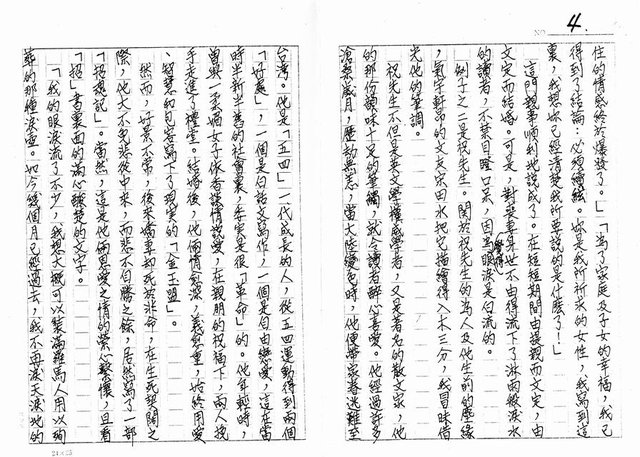 4.
NO
住的情感終於爆發了。」「為了家庭及子女的幸福,我已
得到了結論:必須續絃。妳是我所祈求的女性,我寫到這
裏,我想妳已經清楚我所要說的是什麼了!」
這門親事順利地說成了。在短短期間由提親而文定,由
文定而結婚。可是,對吳事身世不由得流下了淋雨般淚水
的讀者,不禁目瞪口呆,因為覺得眼淚是白流的。
例子之二是祝先生。關於祝先生的為人及他生前的塵緣
,氣宇軒昂的文友宗田水把它描繪得入木三分,我冒昧借
光他的筆調。
祝先生不但是英文學權威學者,又是著名的散文家,他
的那份韻味十足的筆觸,就令讀者醉心喜愛。他經過許多
滄桑歲月,歷劫無恙,當大陸變色時,他便帶家眷逃難至
台灣。他是「五四」一代成長的人,從五四運動得到兩個
「好處」,一個是白話文寫作,一個是自由戀愛,這在當
時半新半舊的社會裏,委實是很「革命」的。他年輕時,
曾與一柔媚女子依着談情說愛,在親朋的祝福下,兩人挽
手走進了禮堂。結婚後,他倆情愈深,義愈重,始終用愛
、智慧和包容寫下了現實的「金玉盟」。
然而,好景不常,後來嬌妻却死於非命,在生死相關之
際,他大不免悲從中來,而悲不自勝之餘,居然寫了一部
「招魂記」。當然,這是他倆恩愛之情的縈心繫懷,且看
「招」書裏面的滿心酸楚的文字。
「我的眼淚流了不少,我想大概可以裝滿羅馬人用以殉
葬的那種淚壺。如今幾個月已經過去,我不再淚天淚地的
24×25